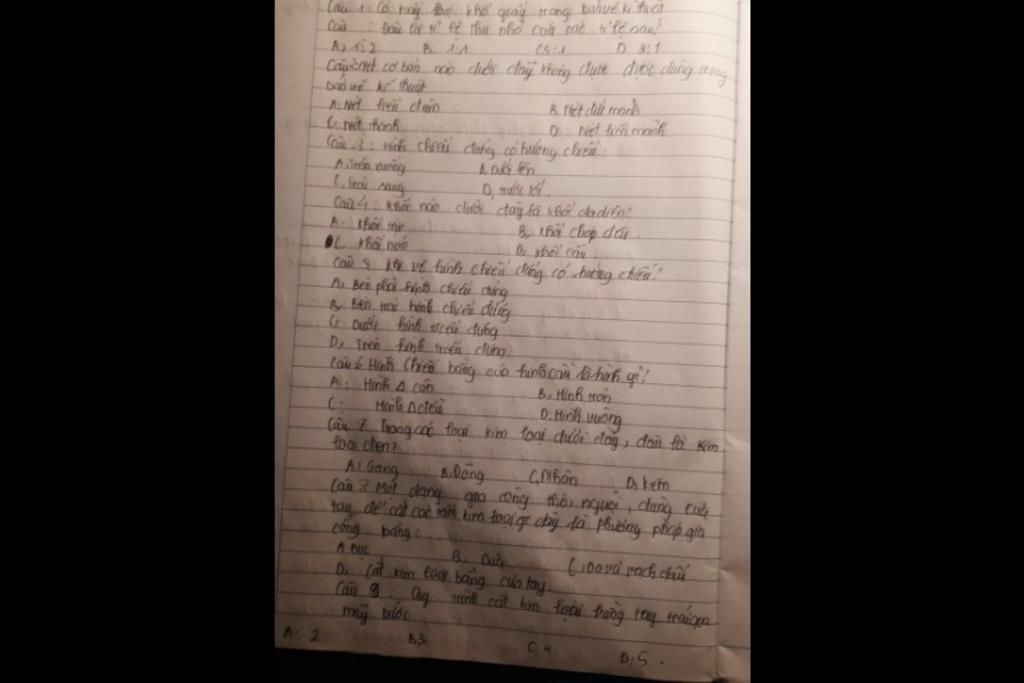 Câu 1 Có mấy loại khổ giấy trong bản vẽ kĩ thuật
Câu : Đâu là tỉ lệ thu nhỏ của các tỉ lệ sau?
A, 1:2 B. 1:1 C 5:1 D
Câu 2 nét cơ bản nào dưới đây không được dùng trong
bản vẽ kĩ thuật
A. Nét liền đậm B. Nét đứt mảnh
C. nét mảnh D: Nét liền mảnh
Câu 3: Hình chiếu đứng có hướng chiếu:
A. Trên xuống B. Dưới lên
C. Trái sang D, trước tới.
Câu 4: Khối nào dưới đây là khối đa diện?
A. Khối B, khối chóp đều.
C. Khối nón D, khối cầu.
Câu 5 vẽ hình chiếu đứng có hướng chiếu?
A, Bên phải hình chiếu đứng
B, Bên trái hình chiếu đứng
C, Dưới hình chiếu đứng
D, Trên hình chiếu đứng.
Câu 6 Hình chiếu bằng của hình cầu là hình gì?
A: Hình Δ cân B, Hình tròn
C: Hình Δ đều D: Hình vuông
Câu 7 Trong các loại kim loại dưới đây, đâu là kim
loại đen?
A: Gang B. Đồng C. Nhôm D, kẽm
Câu 8 Một dạng gia công thô, người, dùng
tay, để cắt các tấm kim loại là phương pháp gia
công bằng:
A. Đục B. Dũa C, Đo và vạch dấu
D. Cắt kim loại bằng cưa tay.
Câu 9: Quy trình cắt kim loại bằng tay trải qua
mấy bước
A: 2 B, 3 C, 4 D: 5.